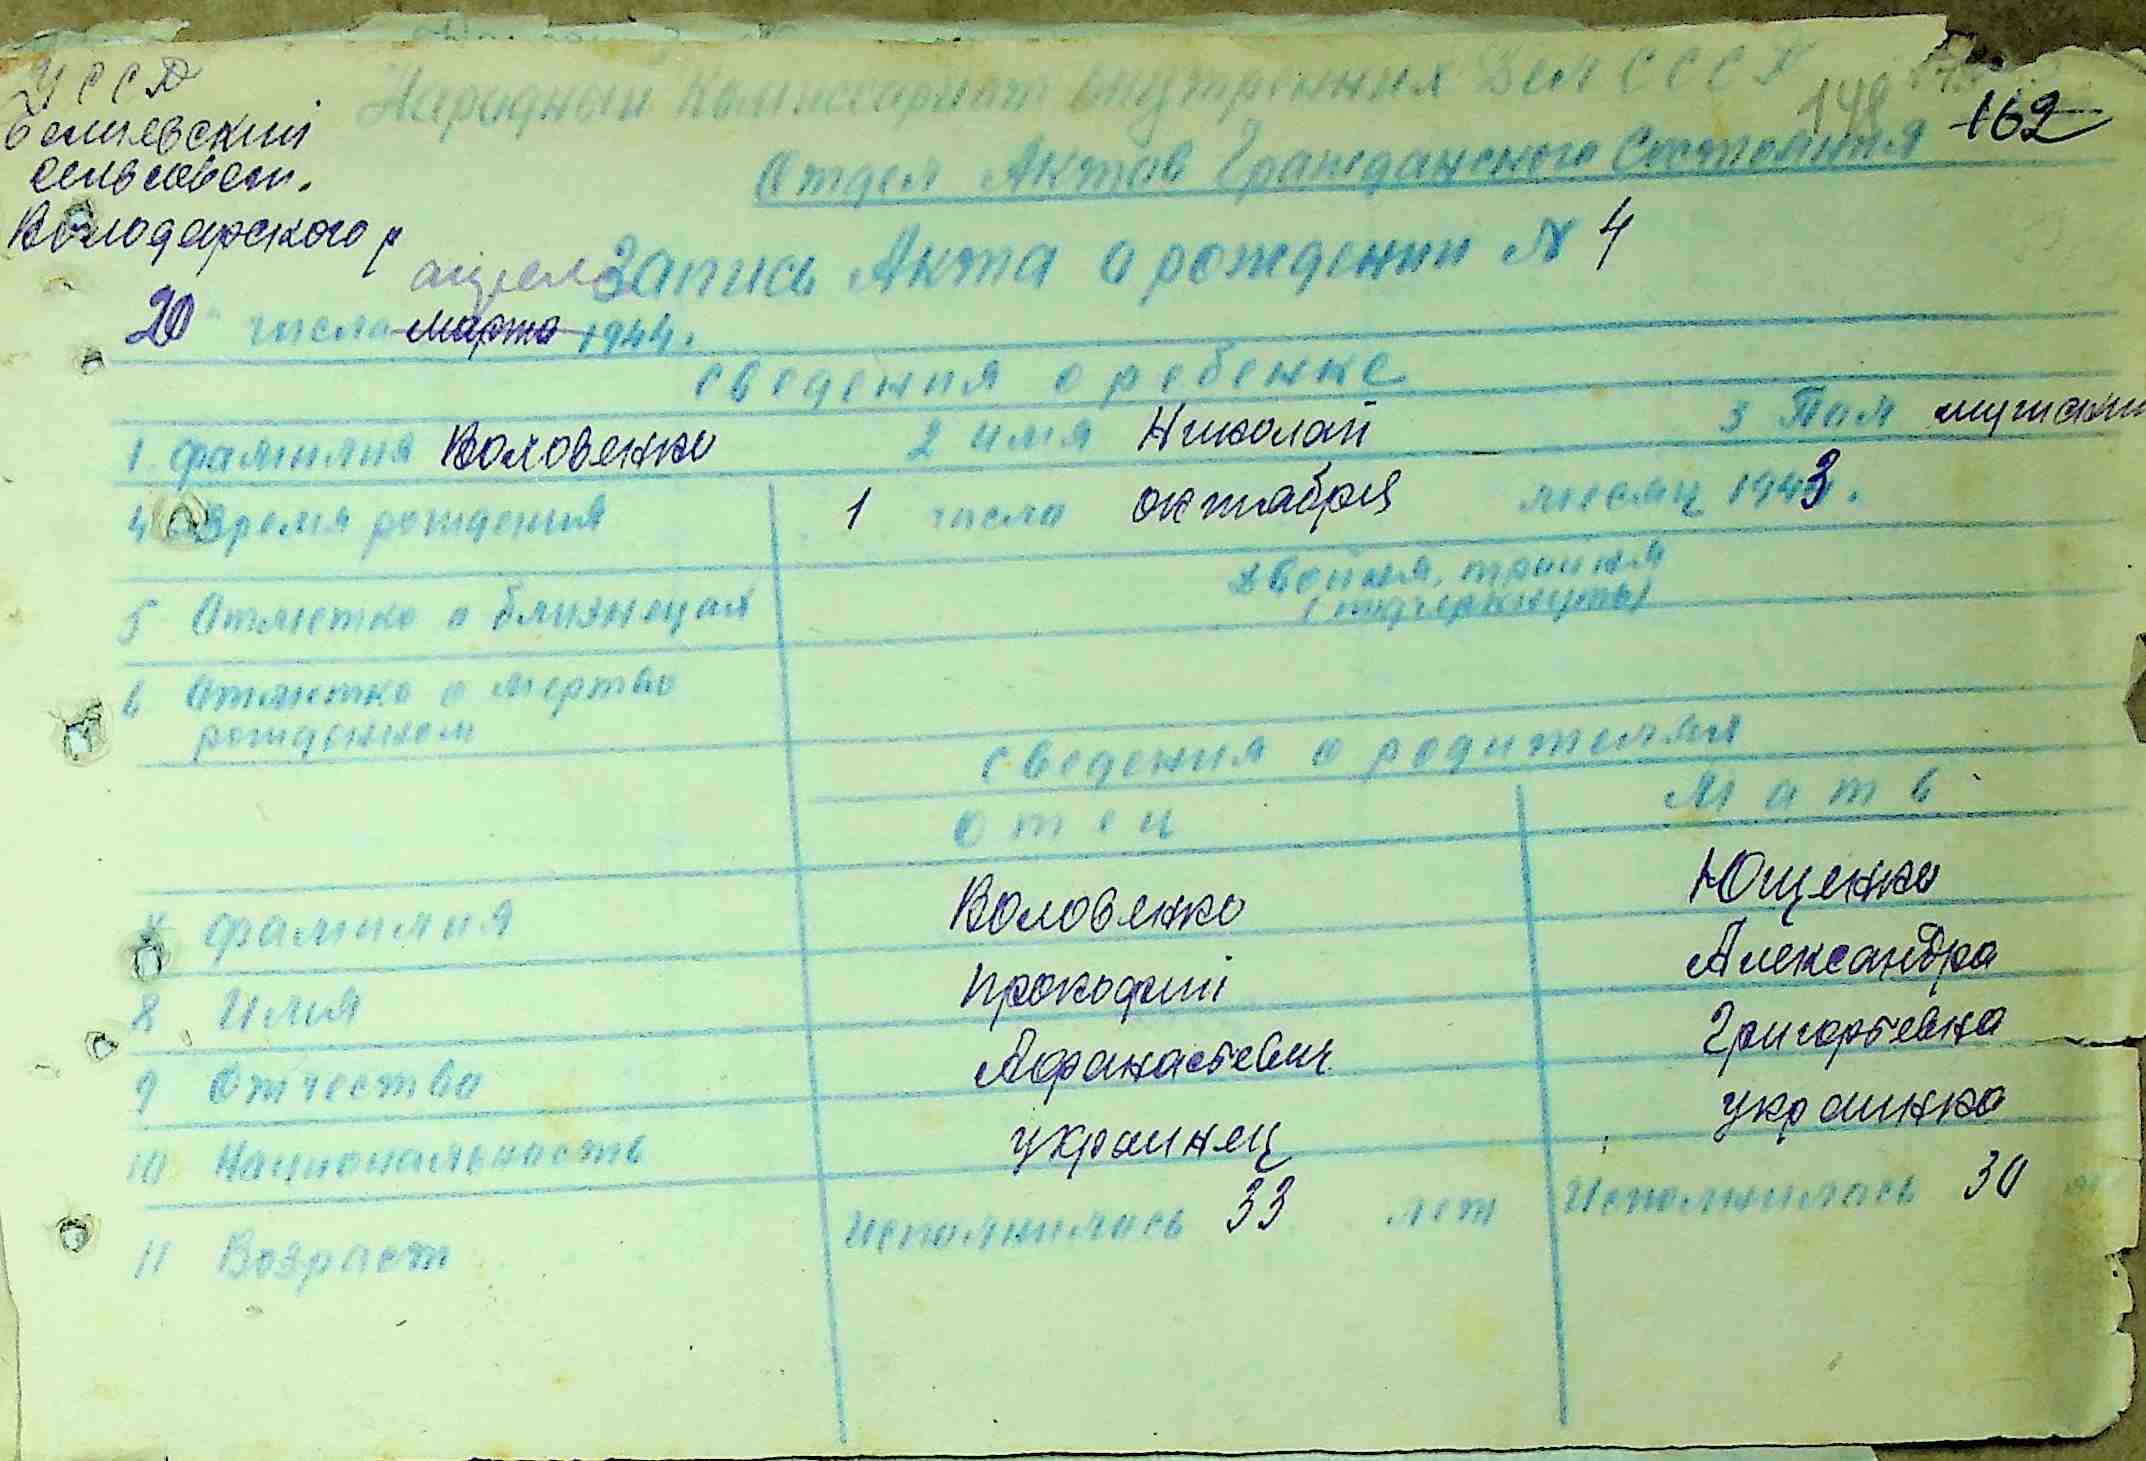 УССР
сельсовет.
Володарского р
Народный Комиссариат Внутренних Дел СССР
148
162
Отдел Актов Гражданского Состояния
Запись Акта о рождении № 4
апреля
20 числа марта 1944.
Сведения о ребенке
1 фамилия Воловенко 2 имя Николай 3 Пол мужский
4 Время рождения 1 числа октября месяц 1943.
5 Отметка о близнецах двойня, тройня
(подчеркнуть)
6 Отметка о мертво
рожденном
Сведения о родителях
Отец Мать
7 фамилия Воловенко Ющенко
8 Имя Прокофий Александра
9 Отчество Афанасьевич Григорьевна
10 Национальность украинец украинка
11 Возраст Исполнилось 33 лет Исполнилась 30 л